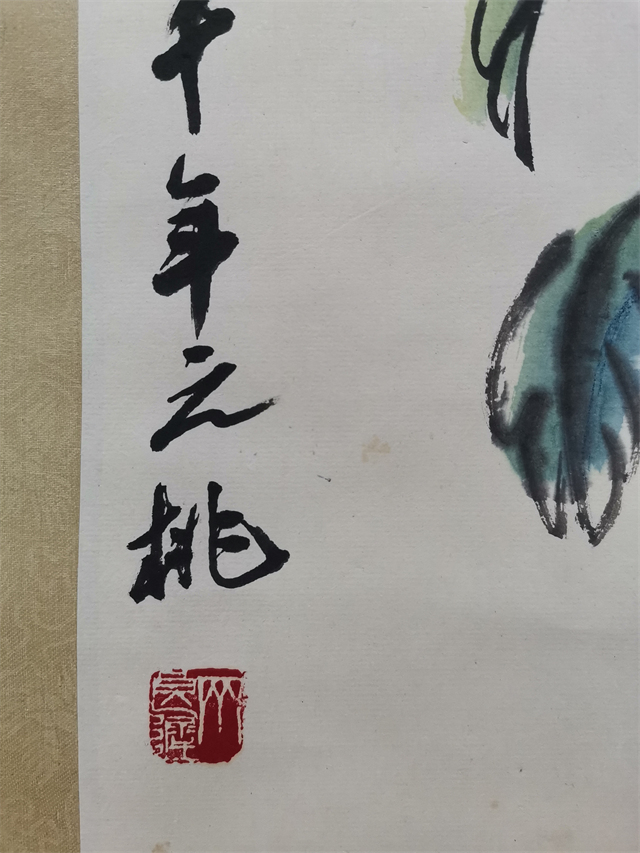 千年之桃